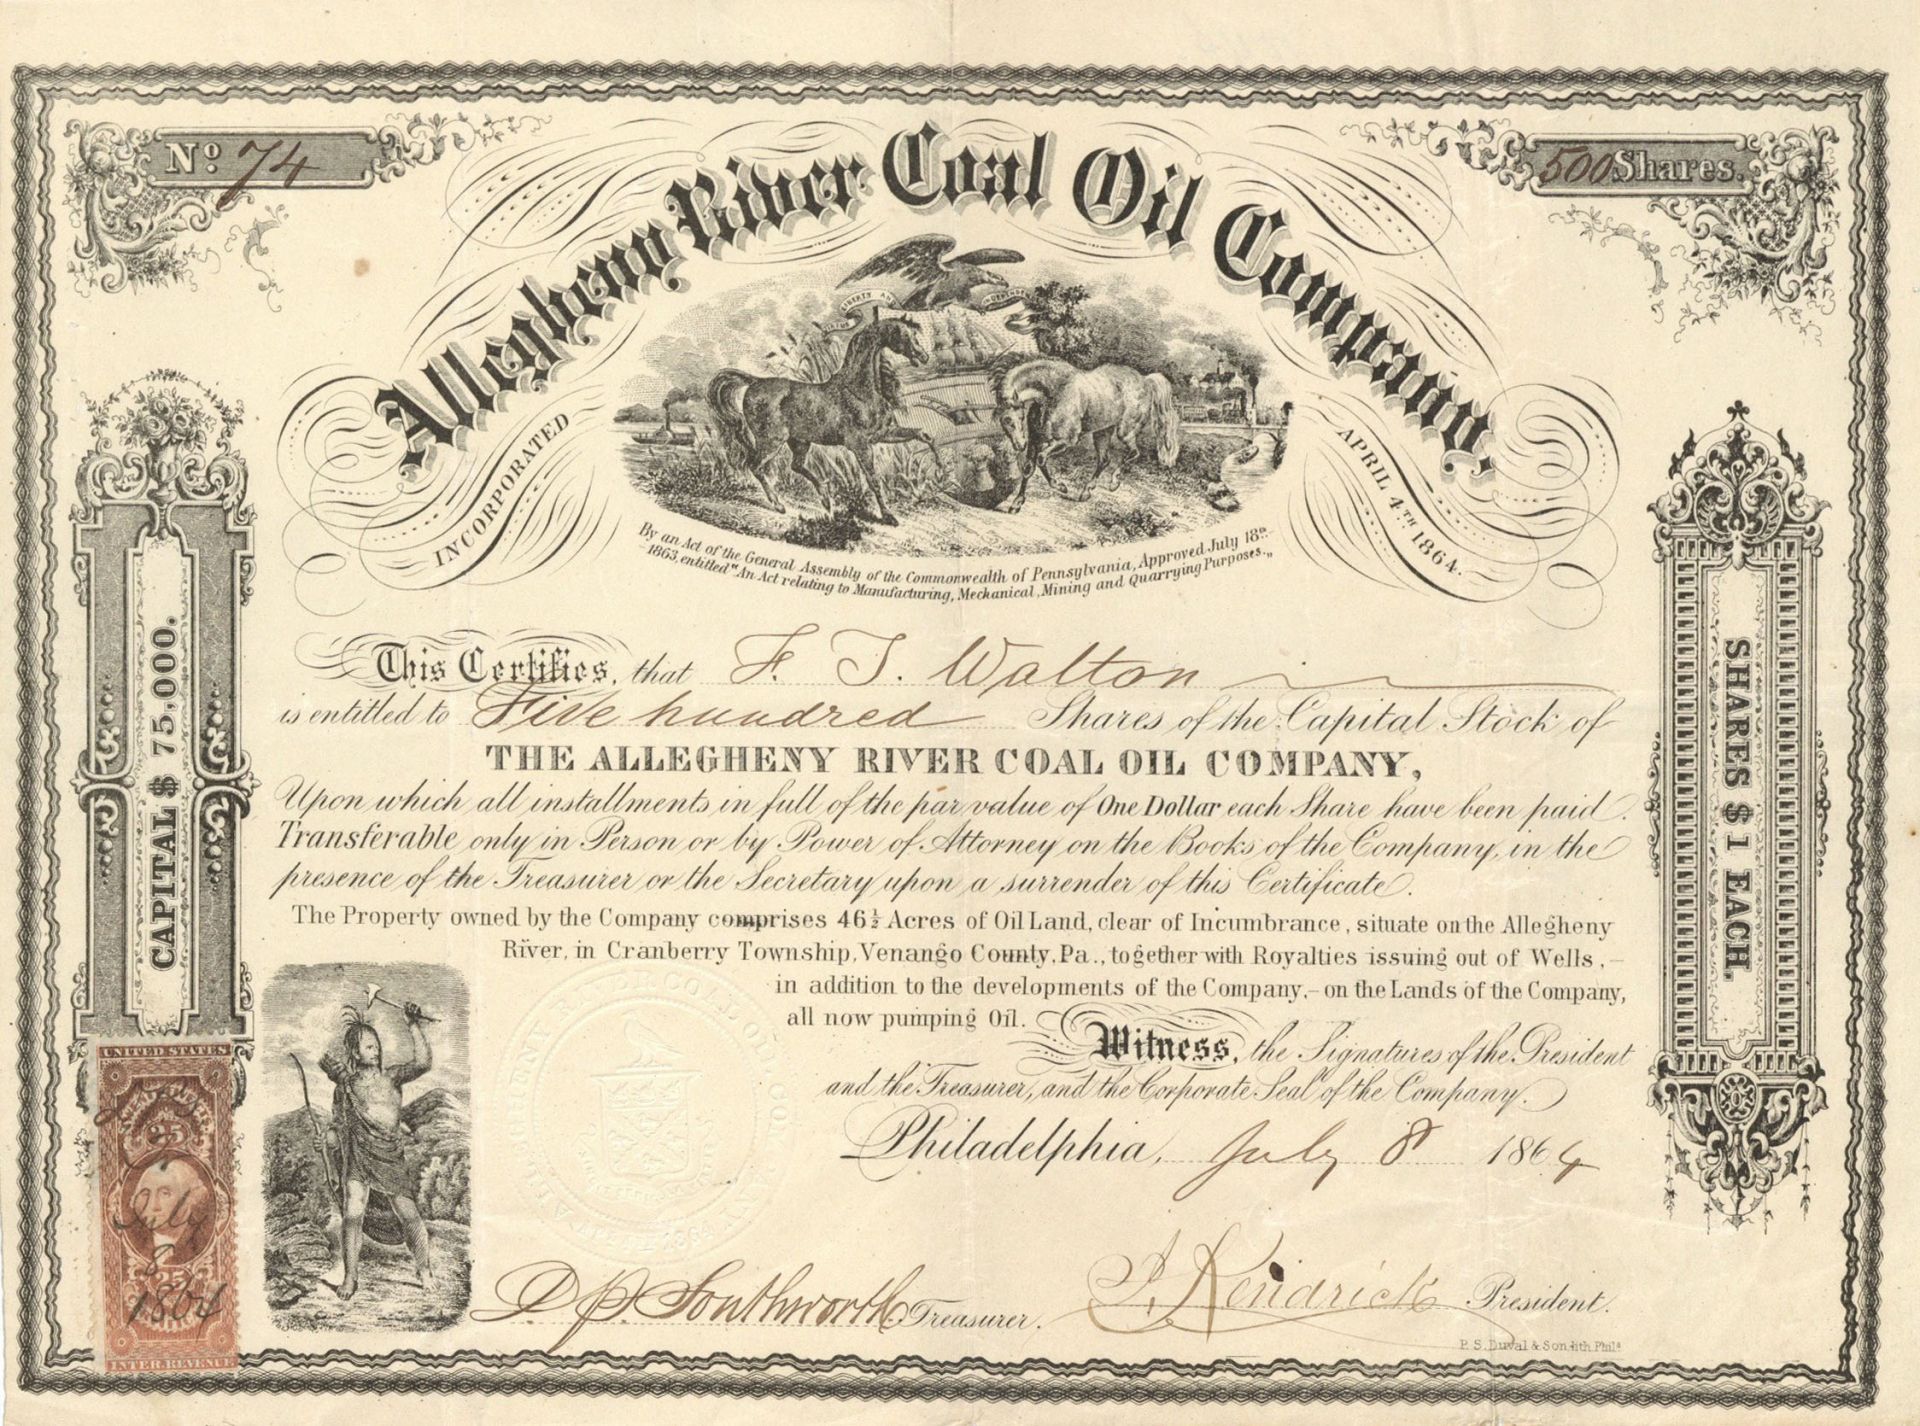 No: 74
500 Shares.
Allegheny River Coal Oil Company.
INCORPORATED
APRIL 4TH 1864.
VIRTUE LIBERTY AND INDEPENDENCE
By an Act of the General Assembly of the Commonwealth of Pennsylvania, Approved July 18th
1863, entitled "An Act relating to Manufacturing, Mechanical, Mining and Quarrying Purposes.„
CAPITAL $ 75,000.
SHARES $ 1 EACH.
This Certifies, that F. T. Walton
is entitled to Five hundred Shares of the Capital Stock of
THE ALLEGHENY RIVER COAL OIL COMPANY,
Upon which all installments in full of the par value of One Dollar each Share have been paid.
Transferable only in Person or by Power of Attorney on the Books of the Company, in the
presence of the Treasurer or the Secretary upon a surrender of this Certificate.
The Property owned by the Company comprises 46½ Acres of Oil Land, clear of Incumbrance, situate on the Allegheny
River, in Cranberry Township, Venango County, Pa., together with Royalties issuing out of Wells,—
in addition to the developments of the Company,—on the Lands of the Company,
all now pumping Oil.
Witness, the Signatures of the President
and the Treasurer, and the Corporate Seal of the Company.
Philadelphia, July 8 1864
ALLEGHENY RIVER COAL OIL COMPANY
APRIL 4 1864
UNITED STATES
25
July
8
1864
25
INTER. REVENUE
D. P. Southworth Treasurer.
J. Kendrick President.
P. S. Duval & Son lith. Phila